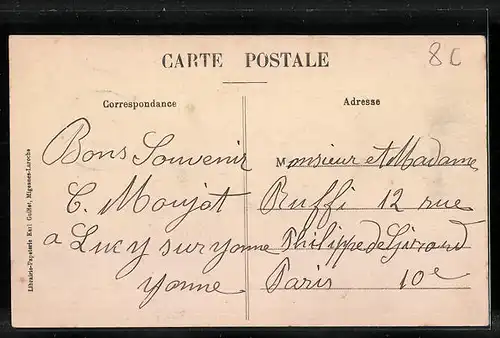 CARTE POSTALE
8C
Correspondance
Adresse
Bons Souvenir
C. Moujot
a Lucy sur yonne
yonne
Monsieur et Madame
Ruffi 12 rue
Philippe de Girard
Paris 10e
Librairie-Papeterie Karl Guillot, Migennes-Laroche